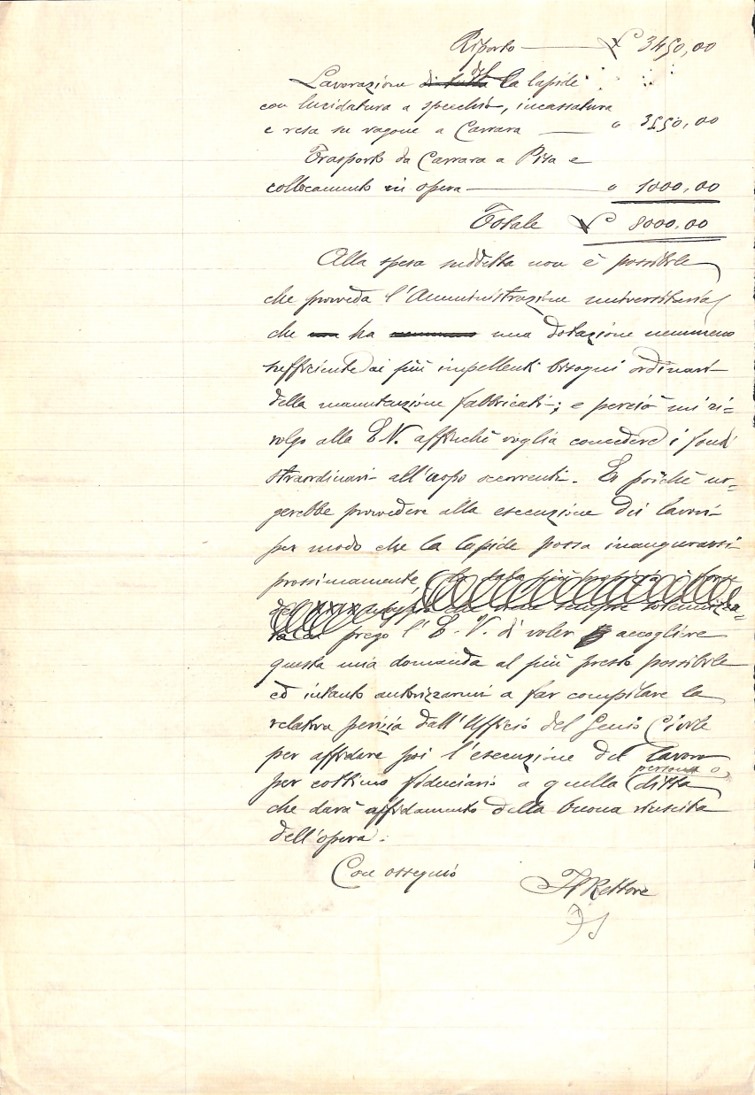 Riporto ——— £ 3450,00
Lavorazione di tutta del la lapide
con lucidatura a specchio, incassatura
e resa su vagone a Carrara —— " 3550,00
Trasporto da Carrara a Pisa e
collocamento in opera ——— " 1000,00
Totale £ 8000.00
Alla spesa suddetta non è possibile
che provveda l'Amministrazione universitaria
che ha una dotazione nemmeno
sufficiente ai più impellenti bisogni ordinari
della manutenzione fabbricati; e perciò mi ri-
volgo alla E.V. affinchè voglia concedere i fondi
straordinari all'uopo occorrenti. E poichè ur-
gerebbe provvedere alla esecuzione dei lavori
per modo che la lapide possa inaugurarsi
prossimamente, la data più
del XXIX che viene sempre solennizza-
ta prego l'E.V. di voler accogliere
questa mia domanda al più presto possibile
ed intanto autorizzarmi a far compilare la
relativa perizia dall'Ufficio del Genio Civile
per affidare poi l'esecuzione del lavoro
per cottimo fiduciario a quella persona o ditta
che darà affidamento della buona riuscita
dell'opera.
Con ossequio
Il Rettore